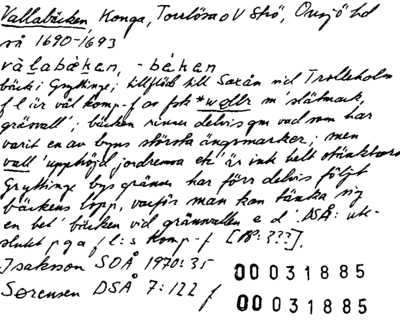 Vallabäcken Konga, Torrlösa o V Strö, Onsjö hd
så 1690-1693
bäck i Gryttinge; tillflöde till Saxån vid Trolleholm
f l är väl komp-f av fsk *wallr m 'slätmark,
gräsvall'; bäcken rinner delvis gm vad som har
varit en av byns största ängsmarker; men
vall 'upphöjd jordremsa etc' är ink helt otänkbart
Gryttinge bys gränser har förr delvis följt
bäckens lopp, varför man kan tänka sig
en bet 'bäcken vid gränsvallen e d'. DSÅ: ute-
slutet p g a f l:s komp-f [18:???].
Isaksson SOÅ 1970:35
Sørensen DSÅ 7:122 f
00 031885
00 031885